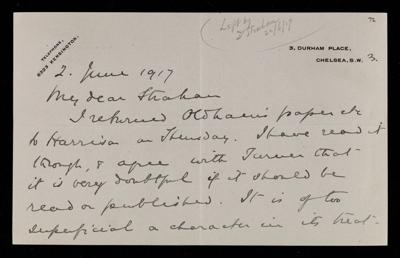 72
Left by
Strahan
22/6/17
TELEPHONE,
KENSINGTON.
3, DURHAM PLACE,
CHELSEA, S.W. 3.
2. June 1917
My dear Strahan
I returned Oldham's paper etc
to Harrison on Thursday. I have read it
through, & agree with Turner that
it is very doubtful if it should be
read or published. It is of too
superficial a character in its treat-